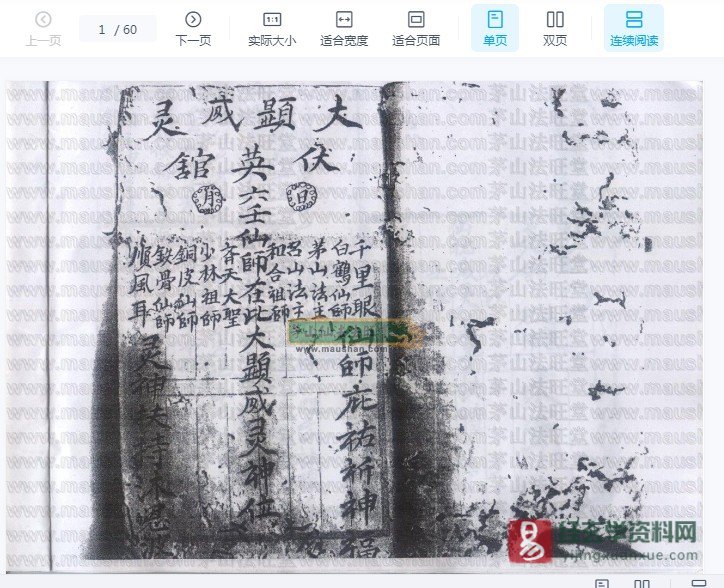 上一页
1 / 60
下一页
实际大小
适合宽度
适合页面
单页
双页
连续阅读
大顯威灵
伏英舘
日
月
千里眼
白鶴仙師
茅山法主
呂山法主
和合祖師
六壬仙師在此大顯威灵神位
齐天大聖
少林祖師
銅皮仙師
鉄骨仙師
順風耳
仙師庇祐祈神福
灵神夫持沐恩
www.maushan.com
茅山法旺堂
易
易玄学资料网
yijingxuanxue.com